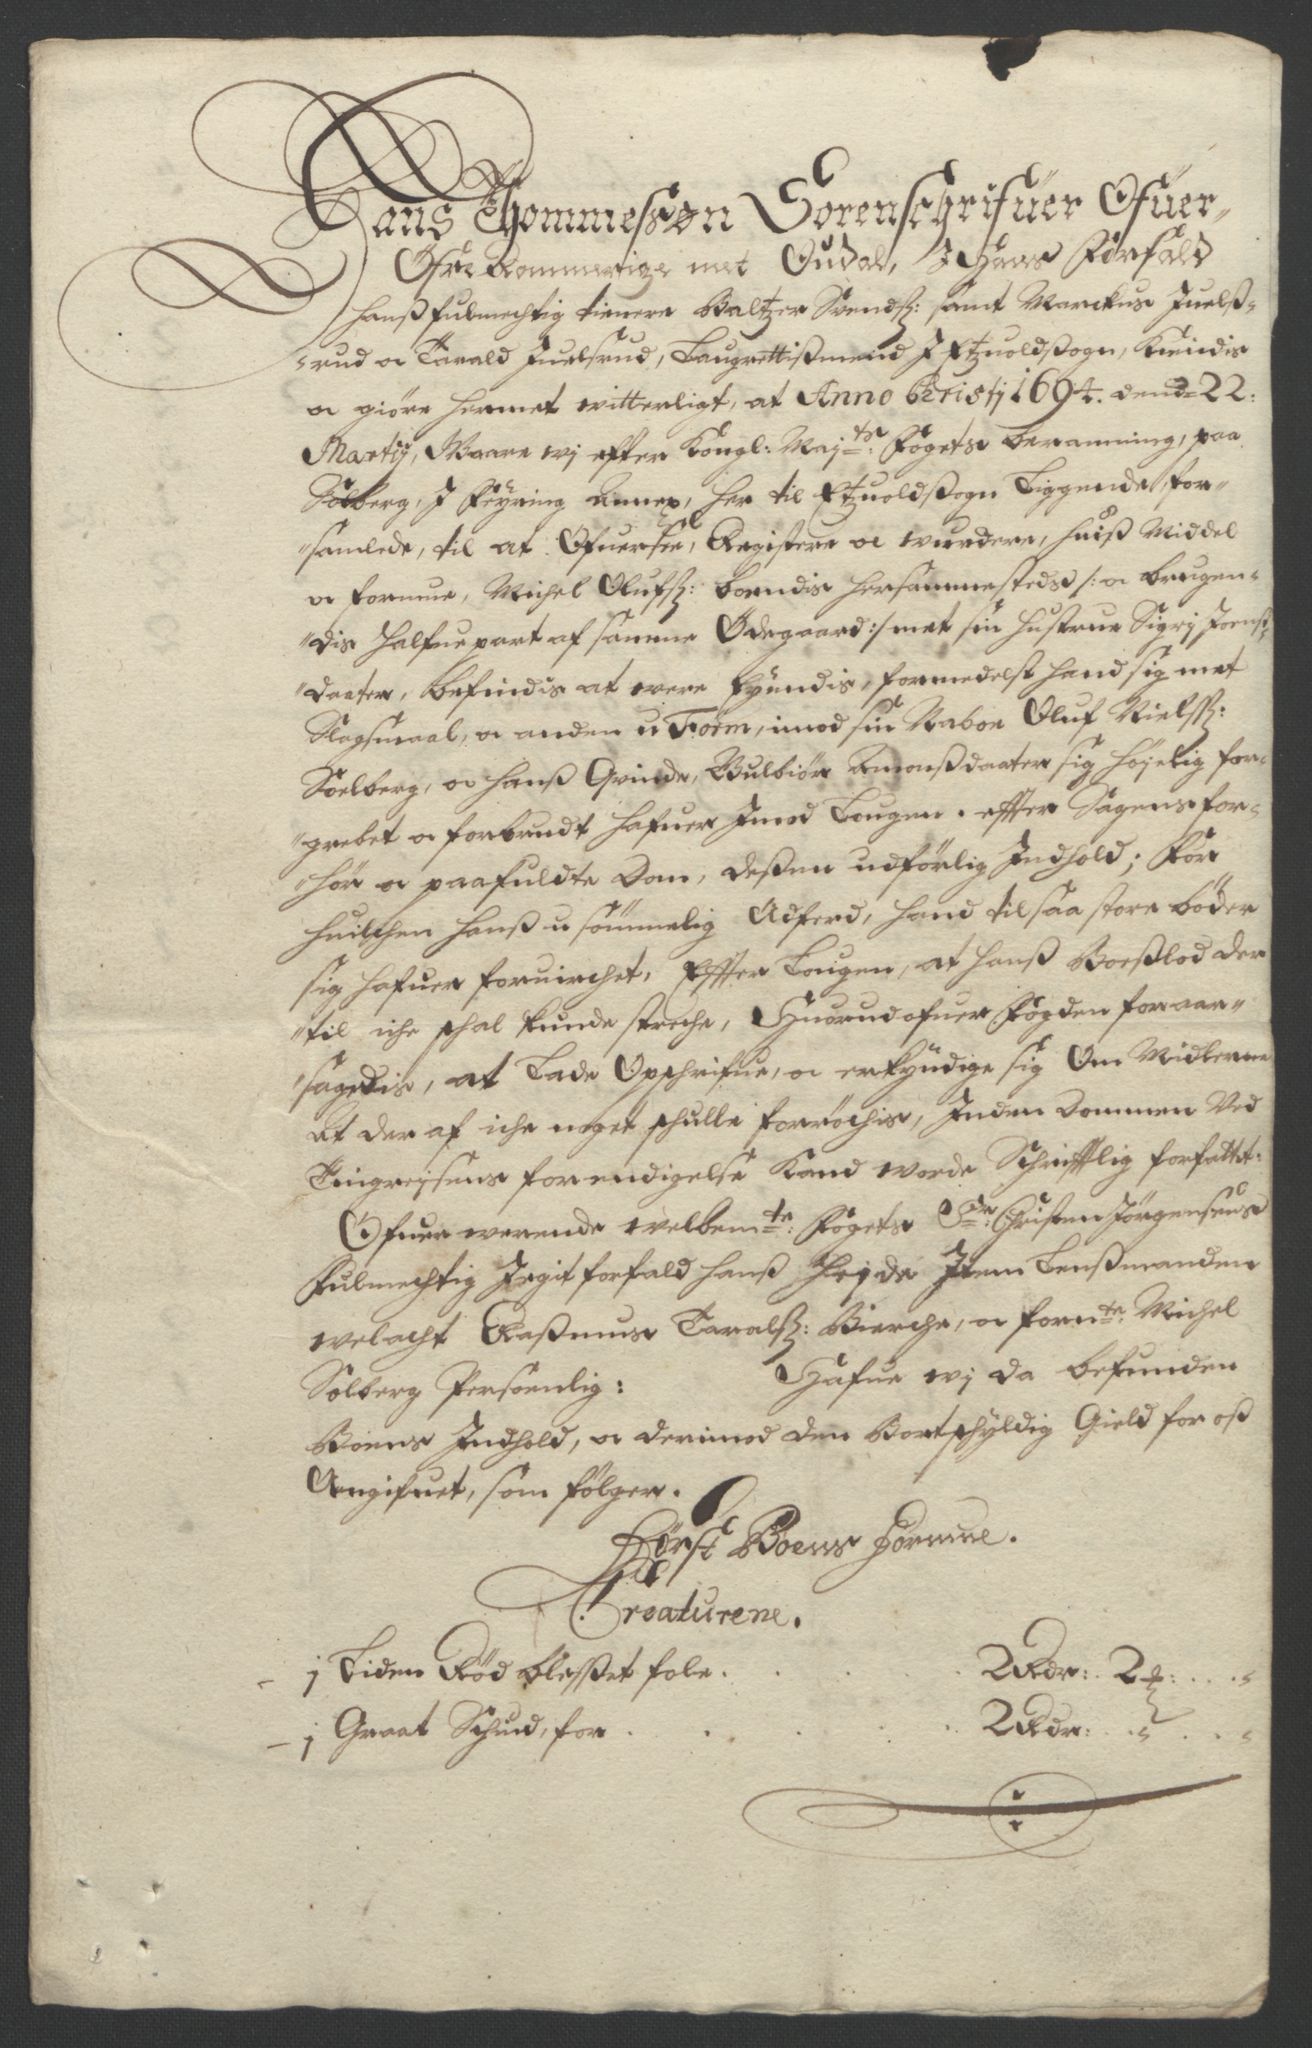 Hans Thommesøn Sorenschrifuer Ofuer
Øfre Rommerige met Oudal, J Hans Forfald
Hanß fulmechtig tienere Baltzer Svendß: samt Marckus Juelß-
rud oc Tarald Juelsrud, Laugrettismend J Etzuoldßogn, Kiendis
oc giøre hermet vitterligt, at Anno Christj 1694. dend 22:
Martij, Waare wj effter Kongl: Maj:ts Fogets beramning, paa
Solberg, J Feyring Annex, her til Etzuoldßogn Liggende, for-
"samlede, til at Ofuersee, Registere oc wurdere, huiß Middel
oc formue, Michel Olufß: boendis hersammesteds /: oc brugen-
"dis Halfuepart af samme Ødegaard :/ met sin Hustrue Sigrj Joenß-
"daater, befindis at were Eyendis, formedelst hand sig met
Slagsmaal, oc anden u Form, imod sin Naboe Oluf Nielß:
Soelberg, oc hanß Qvinde, Gulbiør Amonßdaater sig høyelig for-
"grebet oc forbrudt hafuer Jmod Lougen. effter Sagens for-
"hør oc paafuldte Dom, deßen udførlig Indhold; For
huilchen hanß u sømmelig Adferd, hand til saa store bøder
sig hafuer foruirchet, Effter Lougen, at hanß Boeßlod der
"til iche schal kunde streche, Huorudofuer Fogden foraar-
"sagedis, at Lade Opschrifue, oc erkyndige sig Om Midlerne
At der af iche noget schulle forrøchis, Inden Dommen Ved
Tingreysens forendigelse Kand worde Schrifftlig forfattet:
Ofuerwerende welbem:te Fogets Sr: Christen Jørgensens
Fulmechtig Jegit forfald hanß Heyde Item Lenßmanden
welacht Raßmus Taralß: Bierche, oc forn:te Michel
Solberg Personlig: Hafue wj da befunden
Boens Indhold, oc derimod den Bortschyldig Gield for oß
Angifuet, som følger.
Først Boens Formue.
Creaturene.
- 1 Liden Rød bleßet fole . . . . 2 Rdr: . 2 ₻: . . .
- 1 Graat Schind, for . . . . . 2 Rdr: . . . .